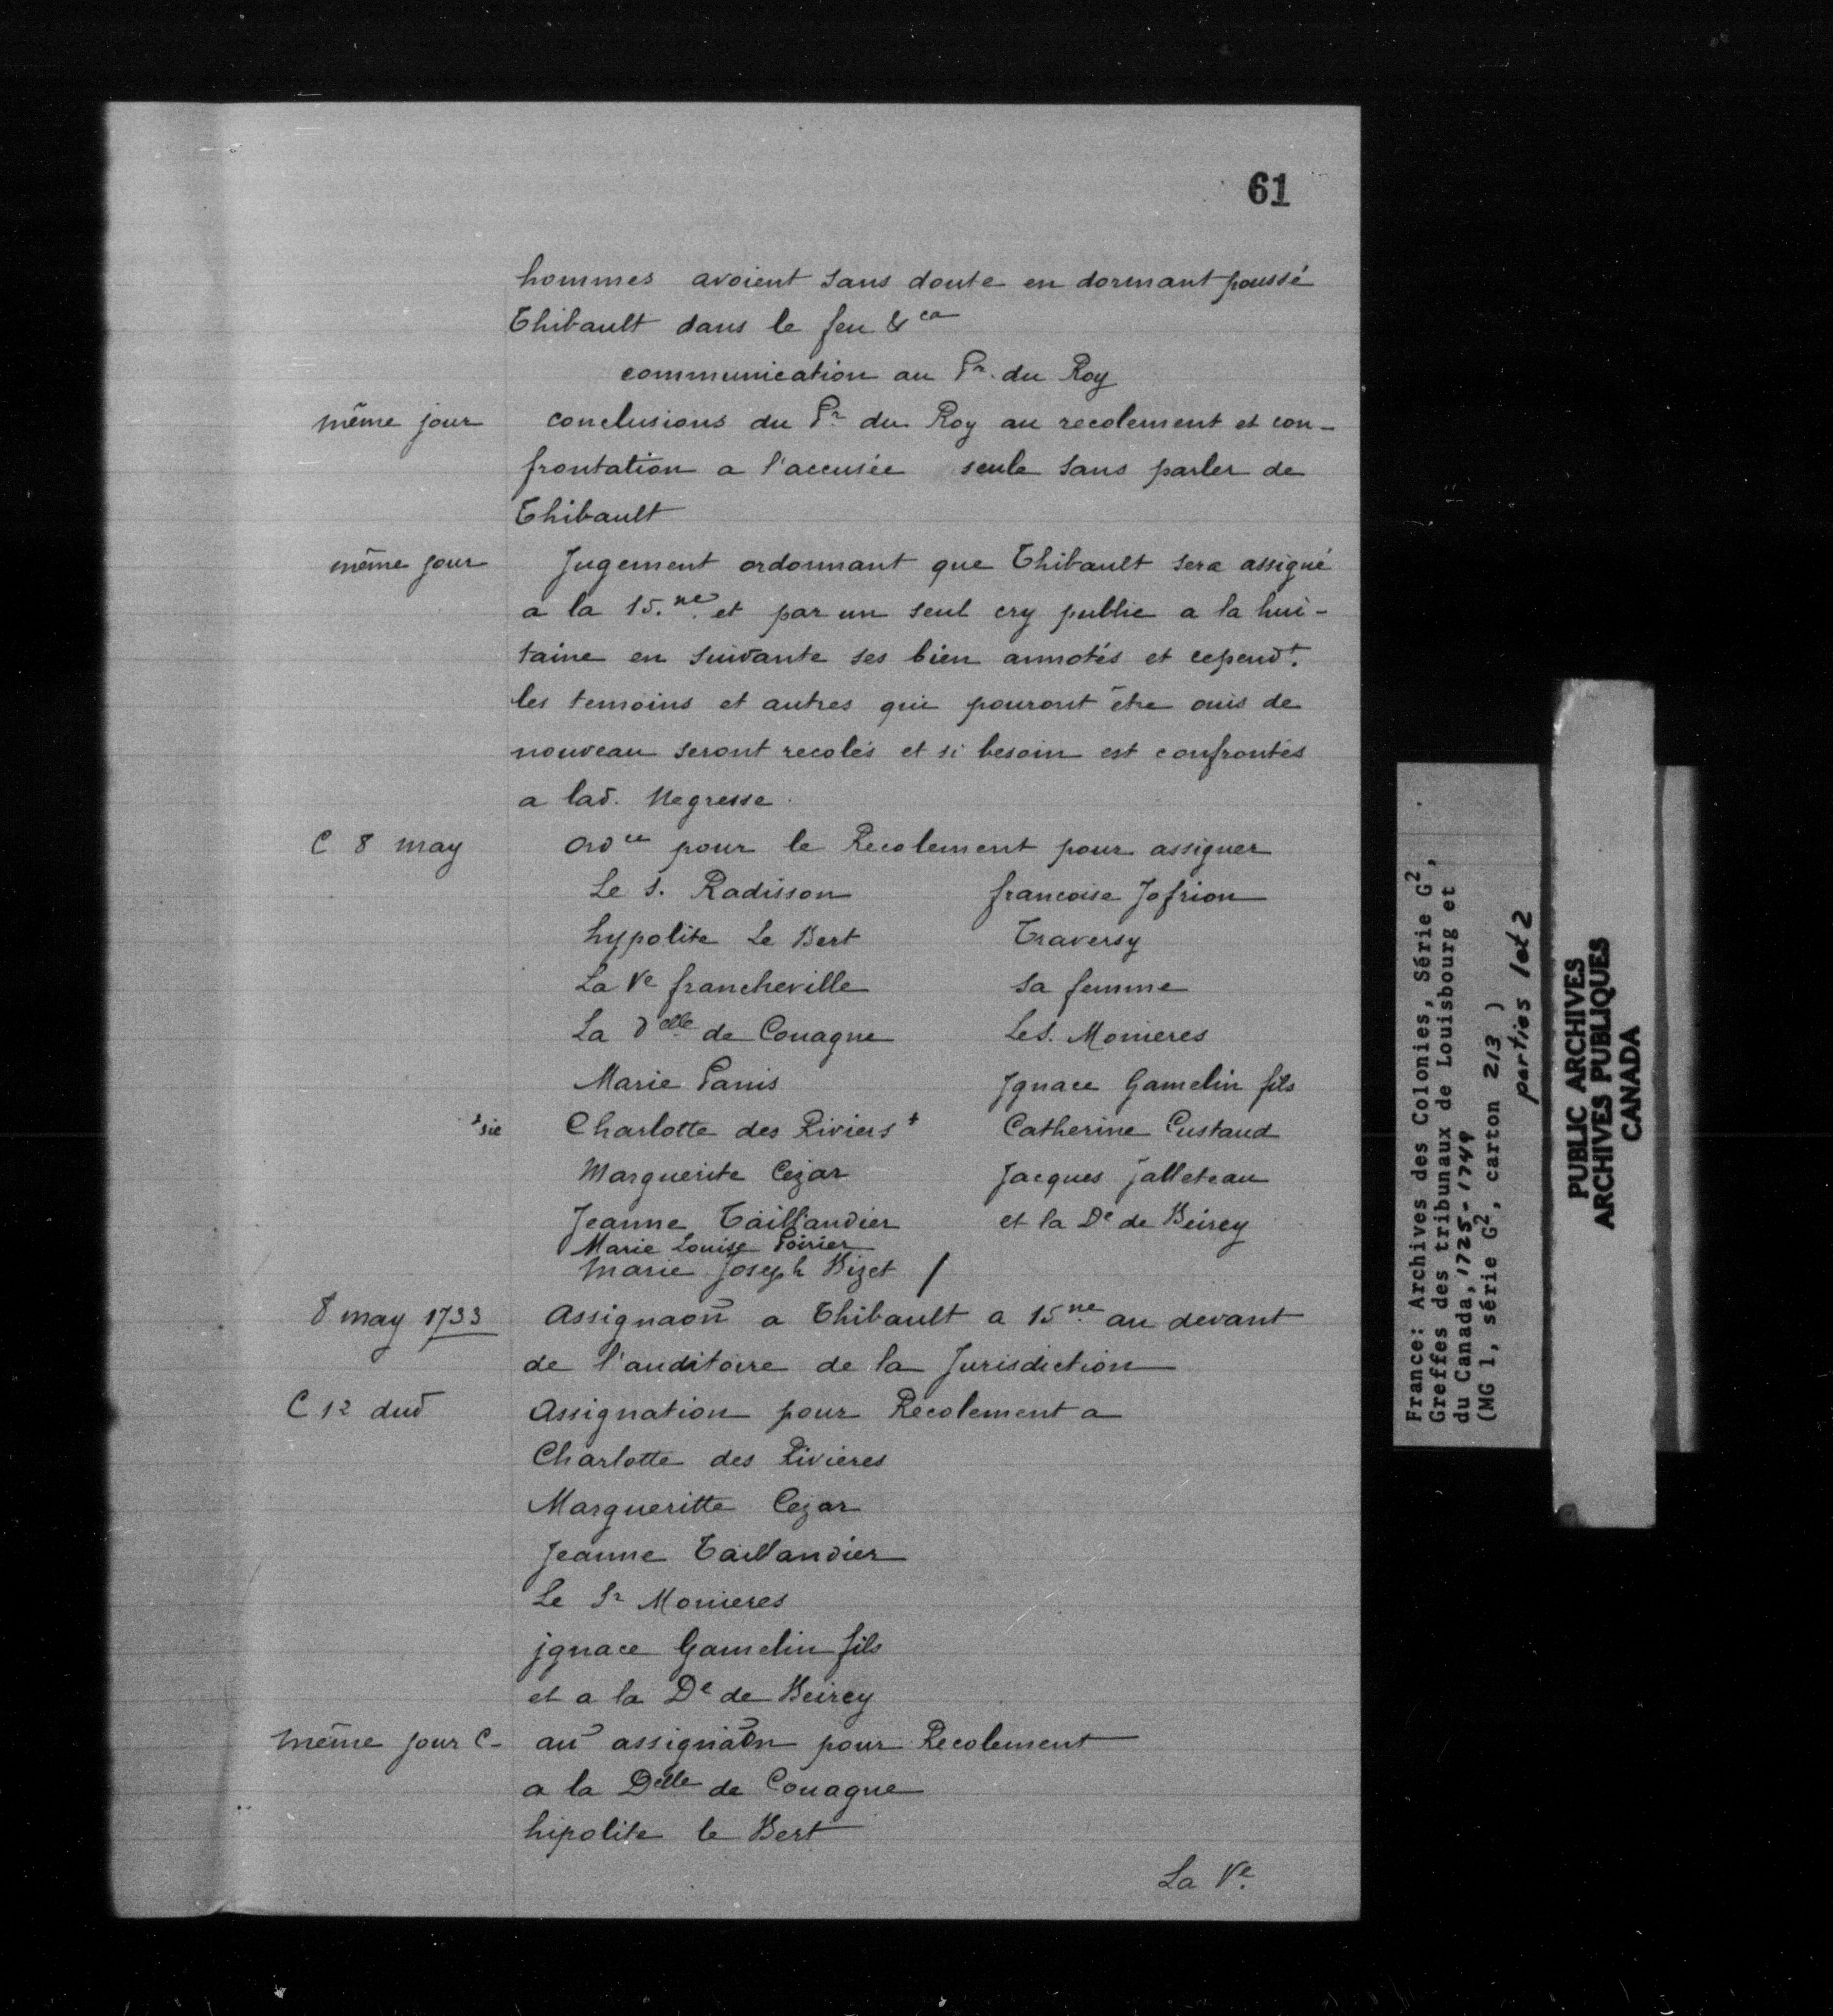 61
hommes avoient sans doute en dormant poussé
Thibault dans le feu &ca
communication au Pr. du Roy
même jour conclusions du Pr du Roy au recolement et con-
frontation a l'accusée seule sans parler de
Thibault
même jour Jugement ordonnant que Thibault sera assigné
a la 15.ne et par un seul cry public a la hui-
taine en suivante ses bien annotés et cependt.
les temoins et autres qui pouront être ouis de
nouveau seront recolés et si besoin est confrontés
a lad. Negresse.
C 8 may Ordce pour le Recolement pour assigner
Le S. Radisson francoise Jofrion
hypolite Le Bert Traversy
La Ve francheville sa femme
La delle de Couagne Le S. Monieres
Marie Panis Jgnace Gamelin fils
+sic Charlotte des Riviers + Catherine Custaud
Marguerite Cezar Jacques jalleteau
Jeanne Taillandier et la De de Beirey
Marie Louise Poirier
Marie Joseph Bizet /
8 may 1733 Assignaōn a Thibault a 15ne au devant
de l'auditoire de la Jurisdiction
C 12 dud Assignation pour Recolement a
Charlotte des Rivieres
Margueritte Cezar
Jeanne Taillandier
Le Sr Monieres
jgnace Gamelin fils
et a la De de Beirey
même jour C- au assignaōn pour Recolement
a la Delle de Couagne
hipolite le Bert
La Ve.
France: Archives des Colonies, Série G2,
Greffes des tribunaux de Louisbourg et
du Canada, 1725-1749
(MG 1, série G2, carton 213 )
parties 1et 2
PUBLIC ARCHIVES
ARCHIVES PUBLIQUES
CANADA